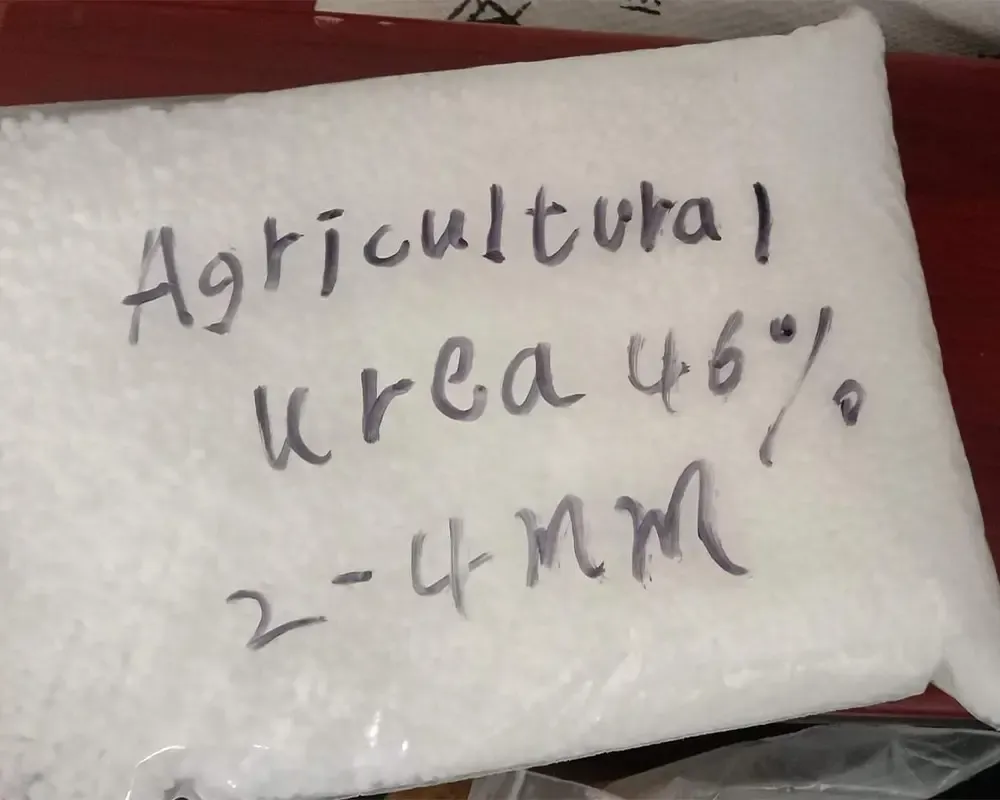 Agricultural
urea 46%
2-4mm